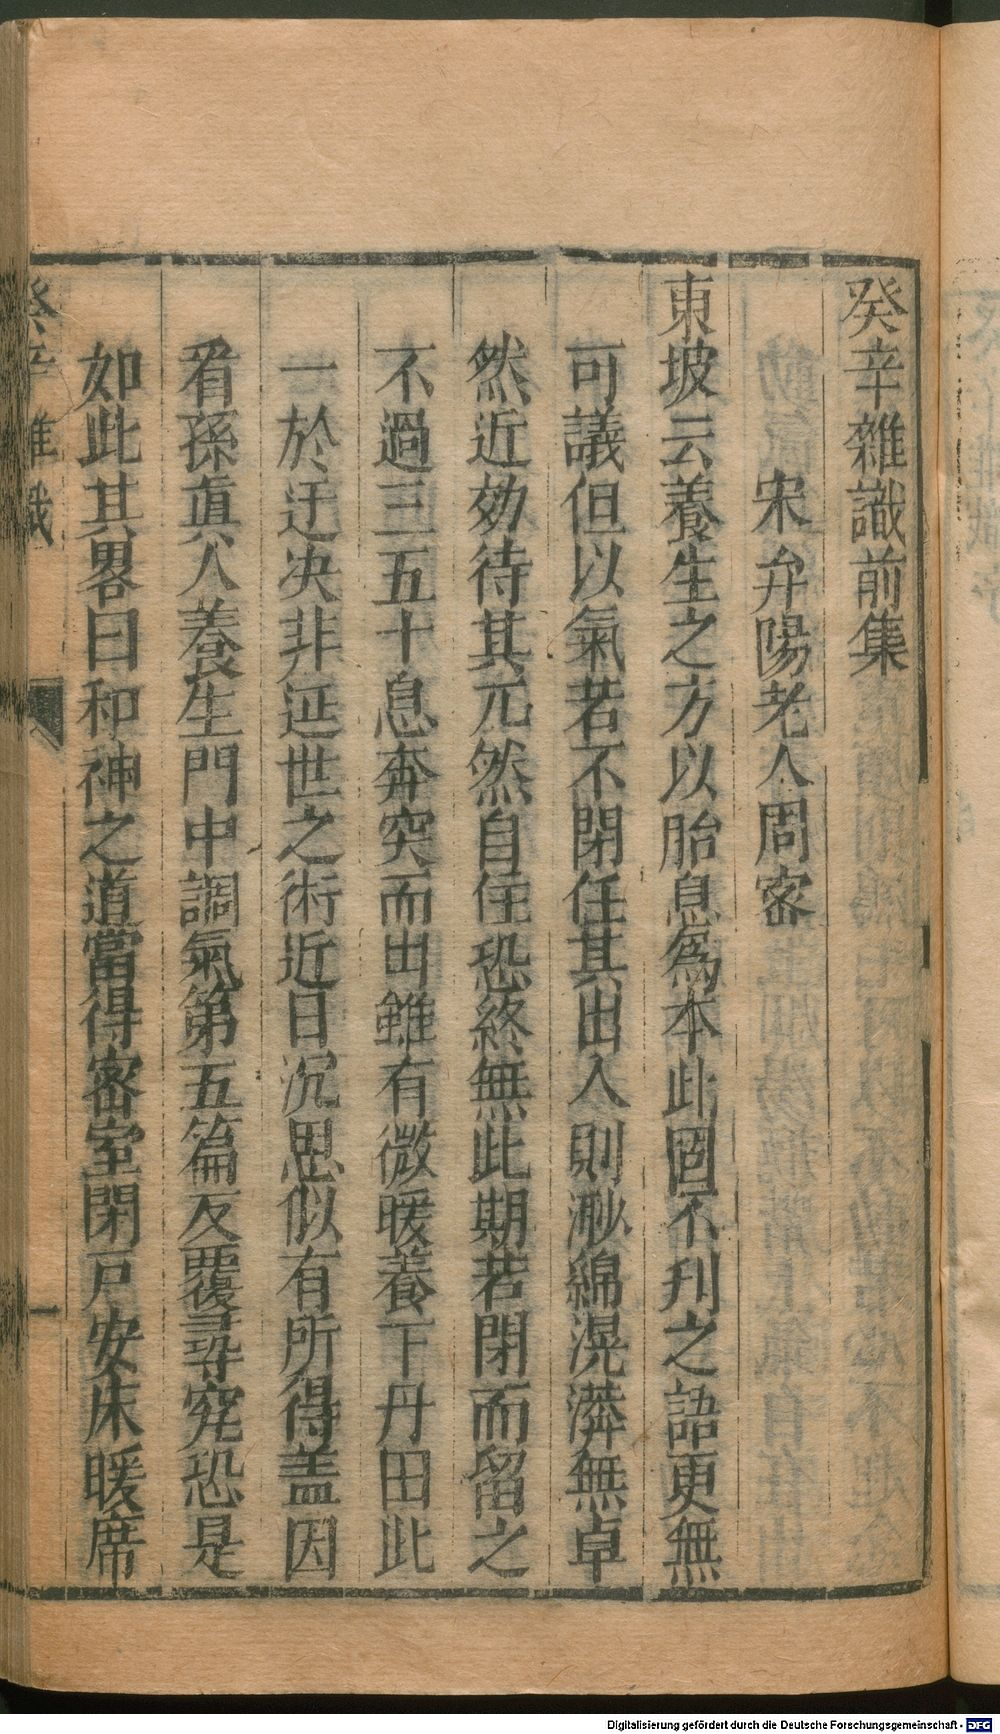 癸辛雜識前集
宋弁陽老人周密
東坡云養生之方以胎息為本此固不刋之語更無
可議但以氣若不閉任其出入則渺綿滉漭無卓
然近効待其元然自住恐終無此期若閉而留之
不過三五十息奔突而出雖有微暖養下丹田此
一於迂决非延世之術近日沉思似有所得盖因
看孫真人養生門中調氣第五篇反覆尋究恐是
如此其畧曰和神之道當得密室閉戸安床暖席
癸辛雜識
一
Digitalisierung gefördert durch die Deutsche Forschungsgemeinschaft - DFG